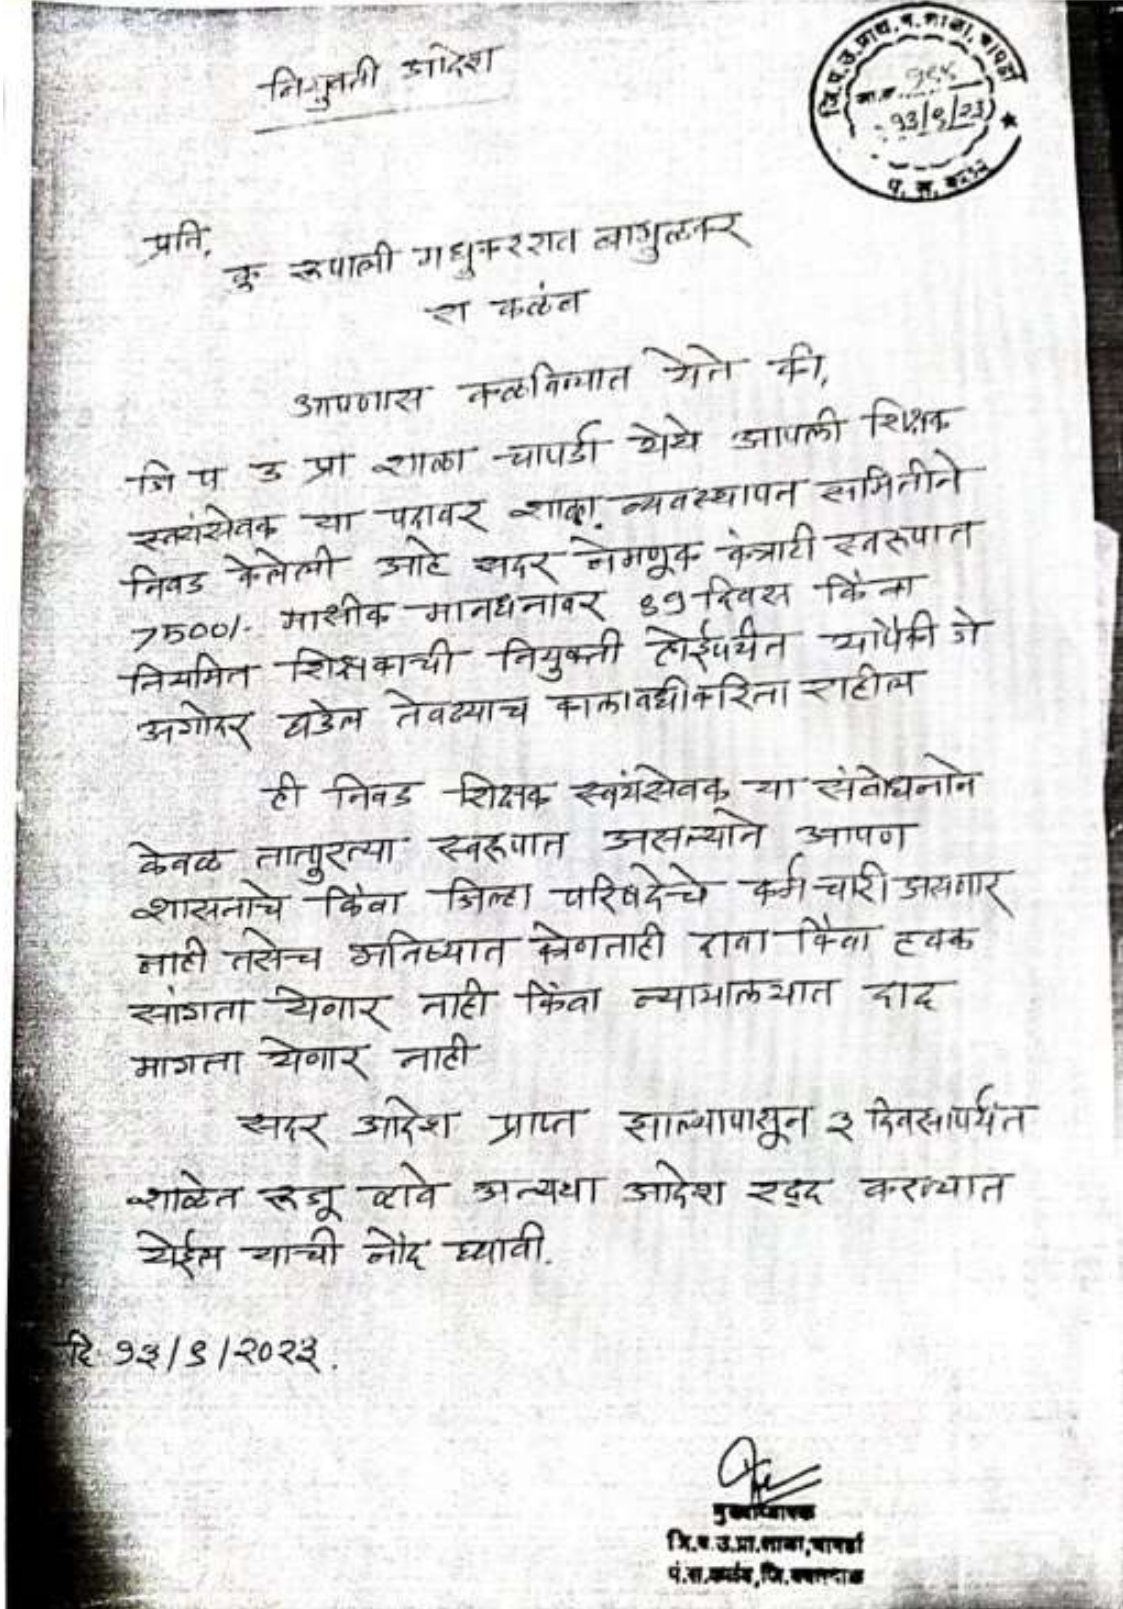 नियुक्ती आदेश
जि.प.उ.प्राथ.म.शाळा, चापर्डा
जा.क्र. १९८
१३/९/२३
पं. स. कळंब
प्रति,
कु रूपाली मधुकरराव बागुलकर
रा कळंब
आपणास कळविण्यात येते की,
जि प उ प्रा शाळा चापर्डा येथे आपली शिक्षक
स्वयंसेवक या पदावर शाळा व्यवस्थापन समितीने
निवड केलेली आहे सदर नेमणूक कंत्राटी स्वरूपात
7500/- मासीक मानधनावर ८९ दिवस किंवा
नियमित शिक्षकाची नियुक्ती होईपर्यंत यापैकी जे
अगोदर घडेल तेवढ्याच कालावधीकरिता राहील
ही निवड शिक्षक स्वयंसेवक या संबोधनाने
केवळ तात्पुरत्या स्वरूपात असल्याने आपण
शासनाचे किंवा जिल्हा परिषदेचे कर्मचारी असणार
नाही तसेच भविष्यात कोणताही दावा किंवा हक्क
सांगता येणार नाही किंवा न्यायालयात दाद
मागता येणार नाही
सदर आदेश प्राप्त झाल्यापासून ३ दिवसापर्यंत
शाळेत रूजू व्हावे अन्यथा आदेश रद्द करण्यात
येईल याची नोंद घ्यावी.
दि १३/९/२०२३.
मुख्याध्यापक
जि.प.उ.प्रा.शाळा,चापर्डा
पं.स.कळंब,जि.यवतमाळ